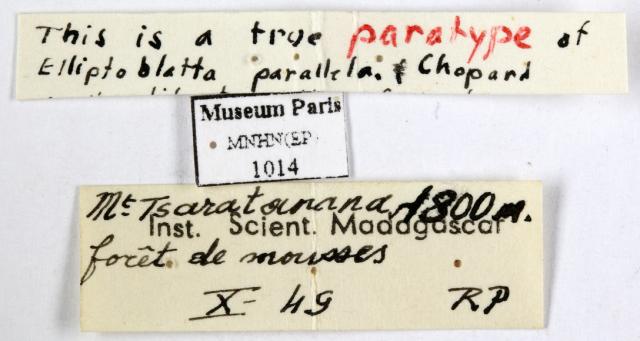 This is a true paratype of
Elliptoblatta parallela. Chopard
Museum Paris
MNHN(EP)
1014
Mt Tsaratanana, 1800 m.
Inst. Scient. Madagascar
forêt de mousses
X- 49 RP